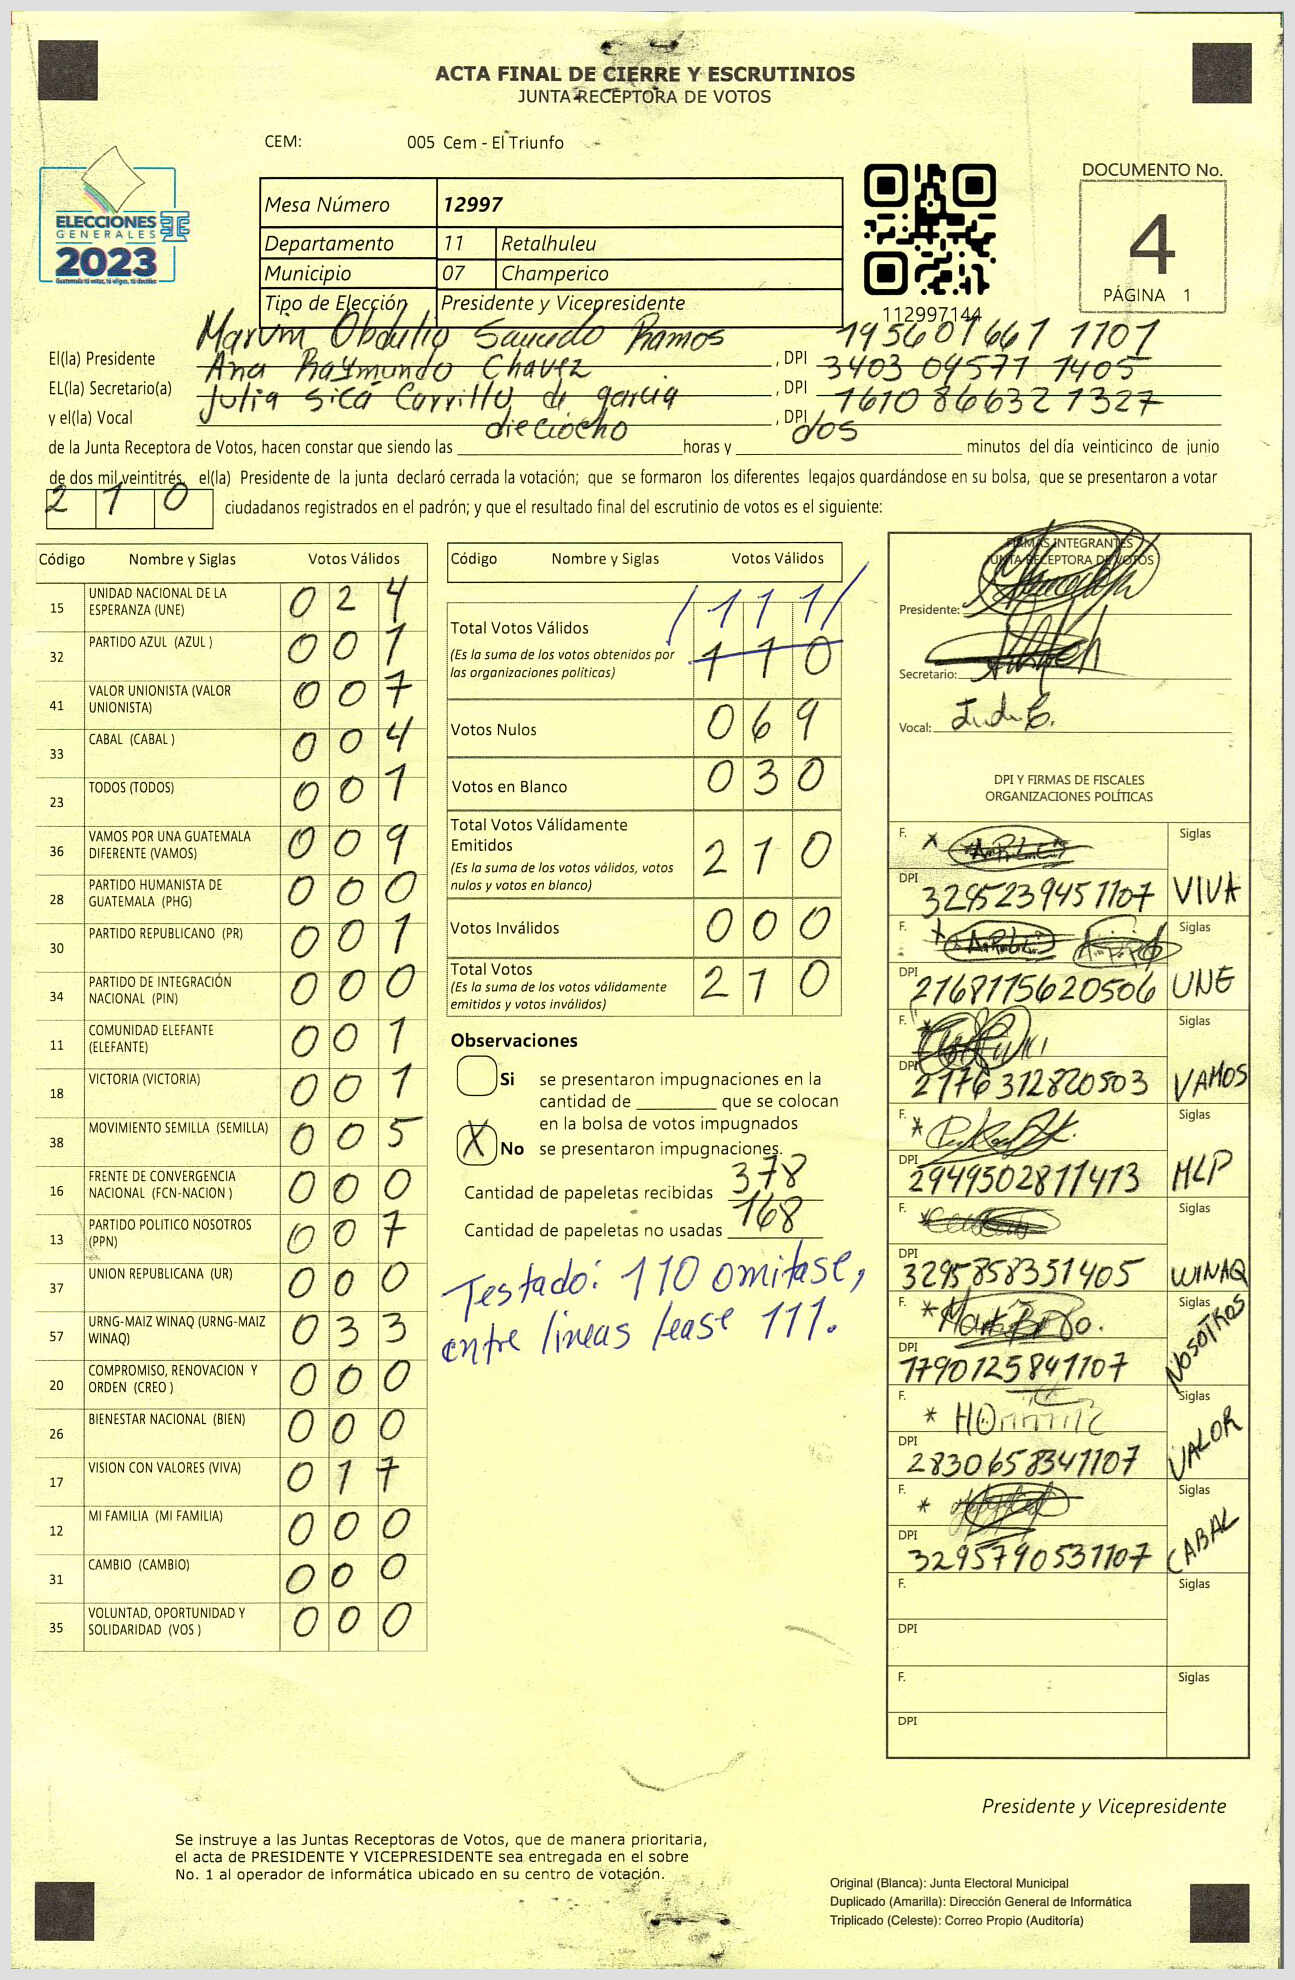 ACTA FINAL DE CIERRE Y ESCRUTINIOS
JUNTA RECEPTORA DE VOTOS
CEM: 005 Cem - El Triunfo
ELECCIONES
GENERALES
2023
Guatemala tú votas, tú eliges, tú decides
Mesa Número 12997
Departamento 11 Retalhuleu
Municipio 07 Champerico
Tipo de Elección Presidente y Vicepresidente
112997144
DOCUMENTO No.
4
PÁGINA 1
El(la) Presidente Obdulio Ramos , DPI 195601661 1101
EL(la) Secretario(a) Ana Raymundo Chavez , DPI 3403 04571 1405
y el(la) Vocal Julia Sicá Carrillo de garcia , DPI 1610 86632 1327
de la Junta Receptora de Votos, hacen constar que siendo las dieciocho horas y dos minutos del día veinticinco de junio
de dos mil veintitrés, el(la) Presidente de la junta declaró cerrada la votación; que se formaron los diferentes legajos guardándose en su bolsa, que se presentaron a votar
210 ciudadanos registrados en el padrón; y que el resultado final del escrutinio de votos es el siguiente:
Código Nombre y Siglas Votos Válidos
15 UNIDAD NACIONAL DE LA ESPERANZA (UNE) 024
32 PARTIDO AZUL (AZUL ) 001
41 VALOR UNIONISTA (VALOR UNIONISTA) 007
33 CABAL (CABAL ) 004
23 TODOS (TODOS) 001
36 VAMOS POR UNA GUATEMALA DIFERENTE (VAMOS) 009
28 PARTIDO HUMANISTA DE GUATEMALA (PHG) 000
30 PARTIDO REPUBLICANO (PR) 001
34 PARTIDO DE INTEGRACIÓN NACIONAL (PIN) 000
11 COMUNIDAD ELEFANTE (ELEFANTE) 001
18 VICTORIA (VICTORIA) 001
38 MOVIMIENTO SEMILLA (SEMILLA) 005
16 FRENTE DE CONVERGENCIA NACIONAL (FCN-NACION ) 000
13 PARTIDO POLITICO NOSOTROS (PPN) 007
37 UNION REPUBLICANA (UR) 000
57 URNG-MAIZ WINAQ (URNG-MAIZ WINAQ) 033
20 COMPROMISO, RENOVACION Y ORDEN (CREO ) 000
26 BIENESTAR NACIONAL (BIEN) 000
17 VISION CON VALORES (VIVA) 017
12 MI FAMILIA (MI FAMILIA) 000
31 CAMBIO (CAMBIO) 000
35 VOLUNTAD, OPORTUNIDAD Y SOLIDARIDAD (VOS ) 000
Código Nombre y Siglas Votos Válidos
/111/
Total Votos Válidos 110
(Es la suma de los votos obtenidos por
las organizaciones políticas)
Votos Nulos 069
Votos en Blanco 030
Total Votos Válidamente
Emitidos 210
(Es la suma de los votos válidos, votos
nulos y votos en blanco)
Votos Inválidos 000
Total Votos 210
(Es la suma de los votos válidamente
emitidos y votos inválidos)
Observaciones
Si se presentaron impugnaciones en la
cantidad de ________ que se colocan
en la bolsa de votos impugnados
X No se presentaron impugnaciones.
Cantidad de papeletas recibidas 378
Cantidad de papeletas no usadas 168
Testado: 110 omitase,
entre lineas lease 111.
FIRMAS INTEGRANTES
JUNTA RECEPTORA DE VOTOS
Presidente:
Secretario:
Vocal:
DPI Y FIRMAS DE FISCALES
ORGANIZACIONES POLÍTICAS
F. Siglas
DPI 3295239451107 VIVA
F. Siglas
DPI 2168115620506 UNE
F. Siglas
DPI 2176312820503 VAMOS
F. Siglas
DPI 2949502811413 MLP
F. Siglas
DPI 3295858351405 WINAQ
F. Siglas
DPI 1790125841107 NOSOTROS
F. Siglas
DPI 2830658341107 VALOR
F. Siglas
DPI 3295790531107 CABAL
F. Siglas
DPI
F. Siglas
DPI
Presidente y Vicepresidente
Se instruye a las Juntas Receptoras de Votos, que de manera prioritaria,
el acta de PRESIDENTE Y VICEPRESIDENTE sea entregada en el sobre
No. 1 al operador de informática ubicado en su centro de votación.
Original (Blanca): Junta Electoral Municipal
Duplicado (Amarilla): Dirección General de Informática
Triplicado (Celeste): Correo Propio (Auditoría)